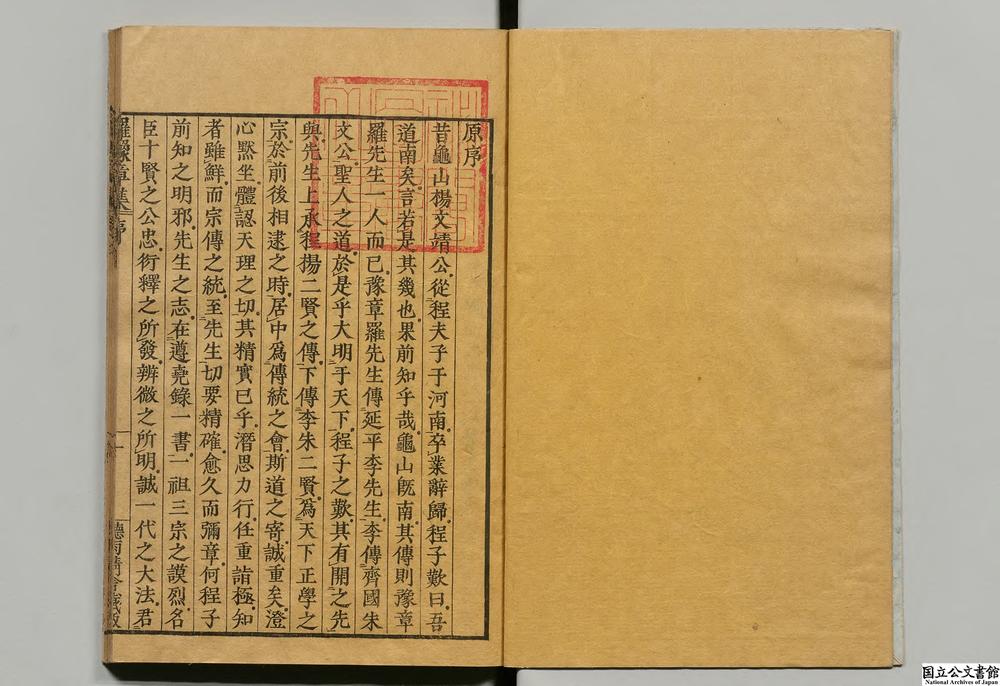 原序
昔龜山楊文靖公從程夫子于河南卒業辭歸程子歎曰吾
道南矣言若是其幾也果前知乎哉龜山旣南其傳則豫章
羅先生一人而已豫章羅先生傳延平李先生李傳齊國朱
文公聖人之道於是乎大明于天下程子之歎其有開之先
與先生上承程揚二賢之傳下傳李朱二賢爲天下正學之
宗於前後相逮之時居中爲傳統之會斯道之寄誠重矣澄
心默坐體認天理之切其精實巳乎潛思力行任重詣極知
者雖鮮而宗傳之統至先生切要精確愈久而彌章何程子
前知之明邪先生之志在遵堯錄一書一祖三宗之謨烈名
臣十賢之公忠衍釋之所發辨微之所明誠一代之大法君
羅豫章集 序
一
国立公文書館
National Archives of Japan